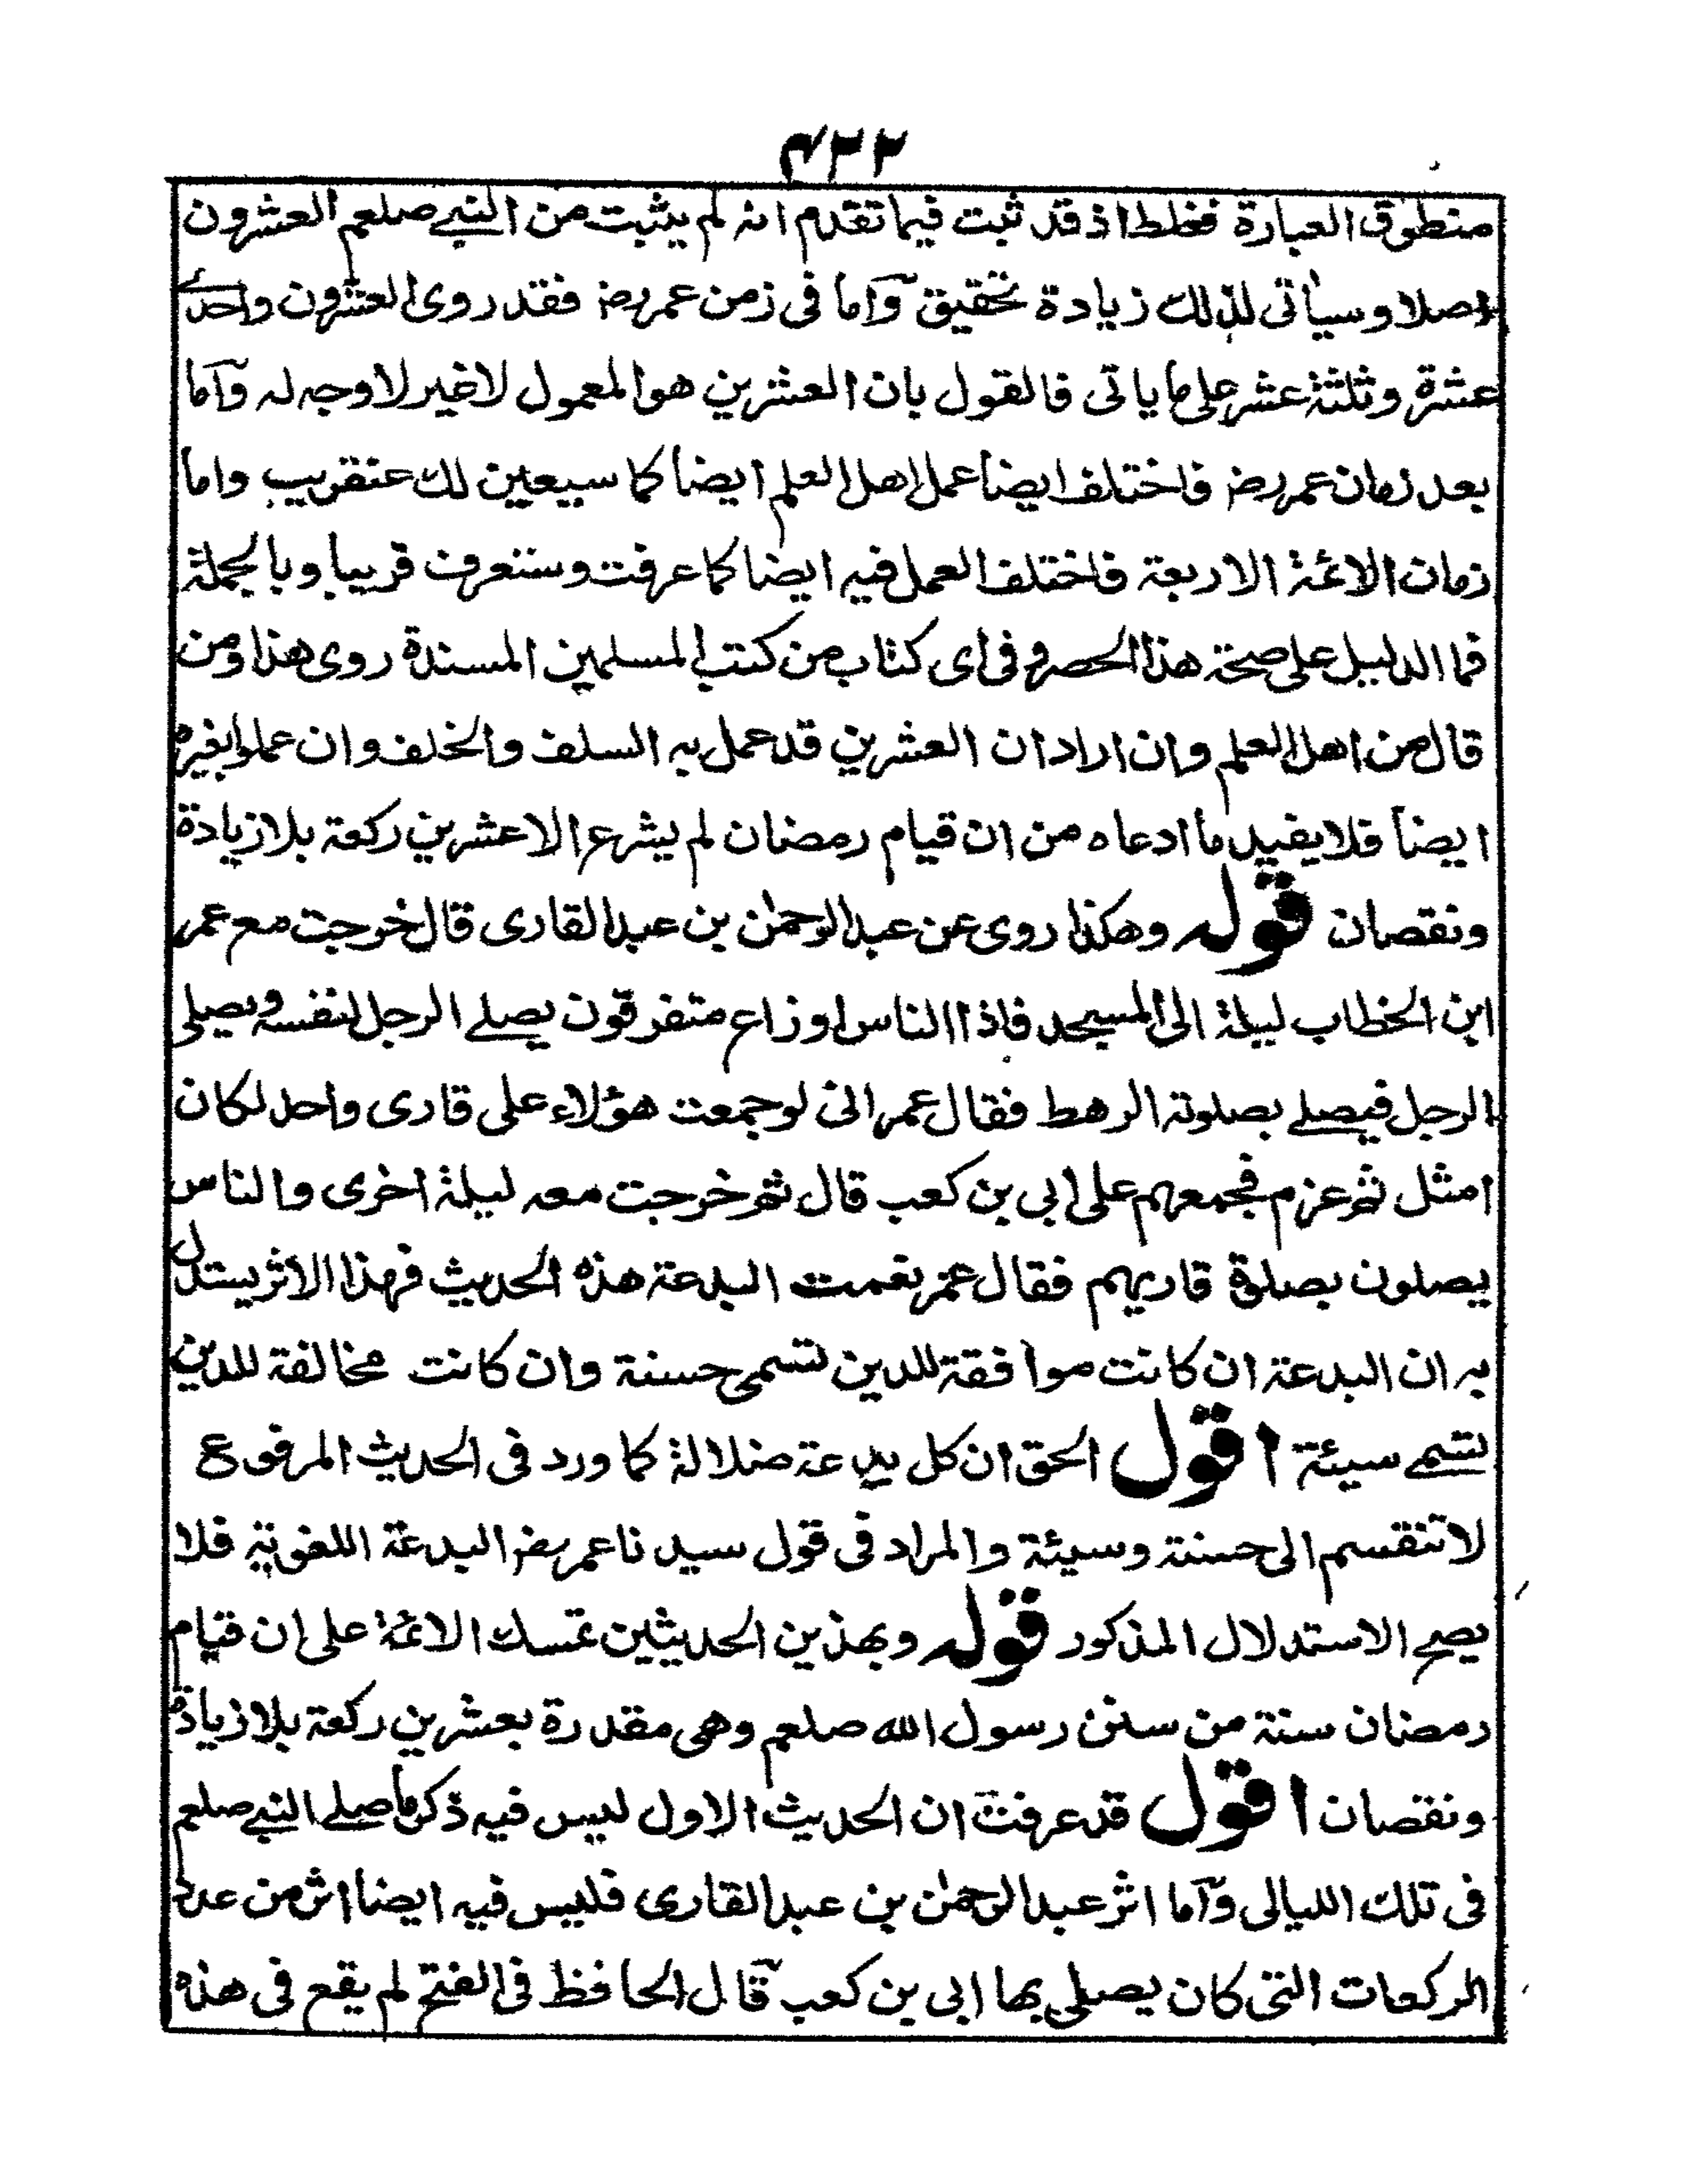 ۴۲۲
منطوق العبارة فغلط اذ قد ثبت فيما تقدم انه لم يثبت من النبي صلعم العشرون
اصلا وسياتى لذلك زيادة تحقيق وآما فى زمن عمر رض فقد روى العشرون واحدى
عشرة وثلثة عشر على ما ياتى فالقول بان العشرين هو المعمول لا غير لا وجه له وآما
بعد زمان عمر رض فاختلف ايضا عمل اهل العلم ايضا كما سيعين لك عنقريب واما
زمان الائمة الاربعة فاختلف العمل فيه ايضا كما عرفت وستعرف قريبا وبالجملة
فما الدليل على صحة هذا الحصر وفى اى كتاب من كتب المسلمين المسندة روى هذا ومن
قال من اهل العلم وان اراد ان العشرين قد عمل به السلف والخلف وان عملوا بغيره
ايضا فلا يفيد ما ادعاه من ان قيام رمضان لم يشرع الا عشرين ركعة بلا زيادة
ونقصان قوله وهكذا روى عن عبد الرحمٰن بن عبد القارى قال خرجت مع عمر
ابن الخطاب ليلة الى المسجد فاذا الناس اوزاع متفرقون يصلے الرجل لنفسه ويصلى
الرجل فيصلے بصلوته الرهط فقال عمر انى لو جمعت هؤلاء على قارى واحد لكان
امثل ثم عزم فجمعهم على ابى بن كعب قال ثم خرجت معه ليلة اخرى والناس
يصلون بصلوة قاريهم فقال عمر نعمت البدعة هذه الحديث فهذا الاثر يستدل
به ان البدعة ان كانت موافقة للدين تسمى حسنة وان كانت مخالفة للدين
تسمے سيئة اقول الحق ان كل بدعة ضلالة كما ورد فى الحديث المرفوع
لا تنقسم الى حسنة وسيئة والمراد فى قول سيدنا عمر رض البدعة اللغوية فلا
يصح الاستدلال المذكور قوله وبهذين الحديثين تمسك الائمة على ان قيام
رمضان سنة من سنن رسول الله صلعم وهى مقدرة بعشرين ركعة بلا زيادة
ونقصان اقول قد عرفت ان الحديث الاول ليس فيه ذكر ما صلے النبي صلعم
فى تلك الليالى وآما اثر عبد الرحمٰن بن عبد القارى فليس فيه ايضا اثر من عدد
الركعات التى كان يصلى بها ابى بن كعب قآل الحافظ فى الفتح لم يقع فى هذه